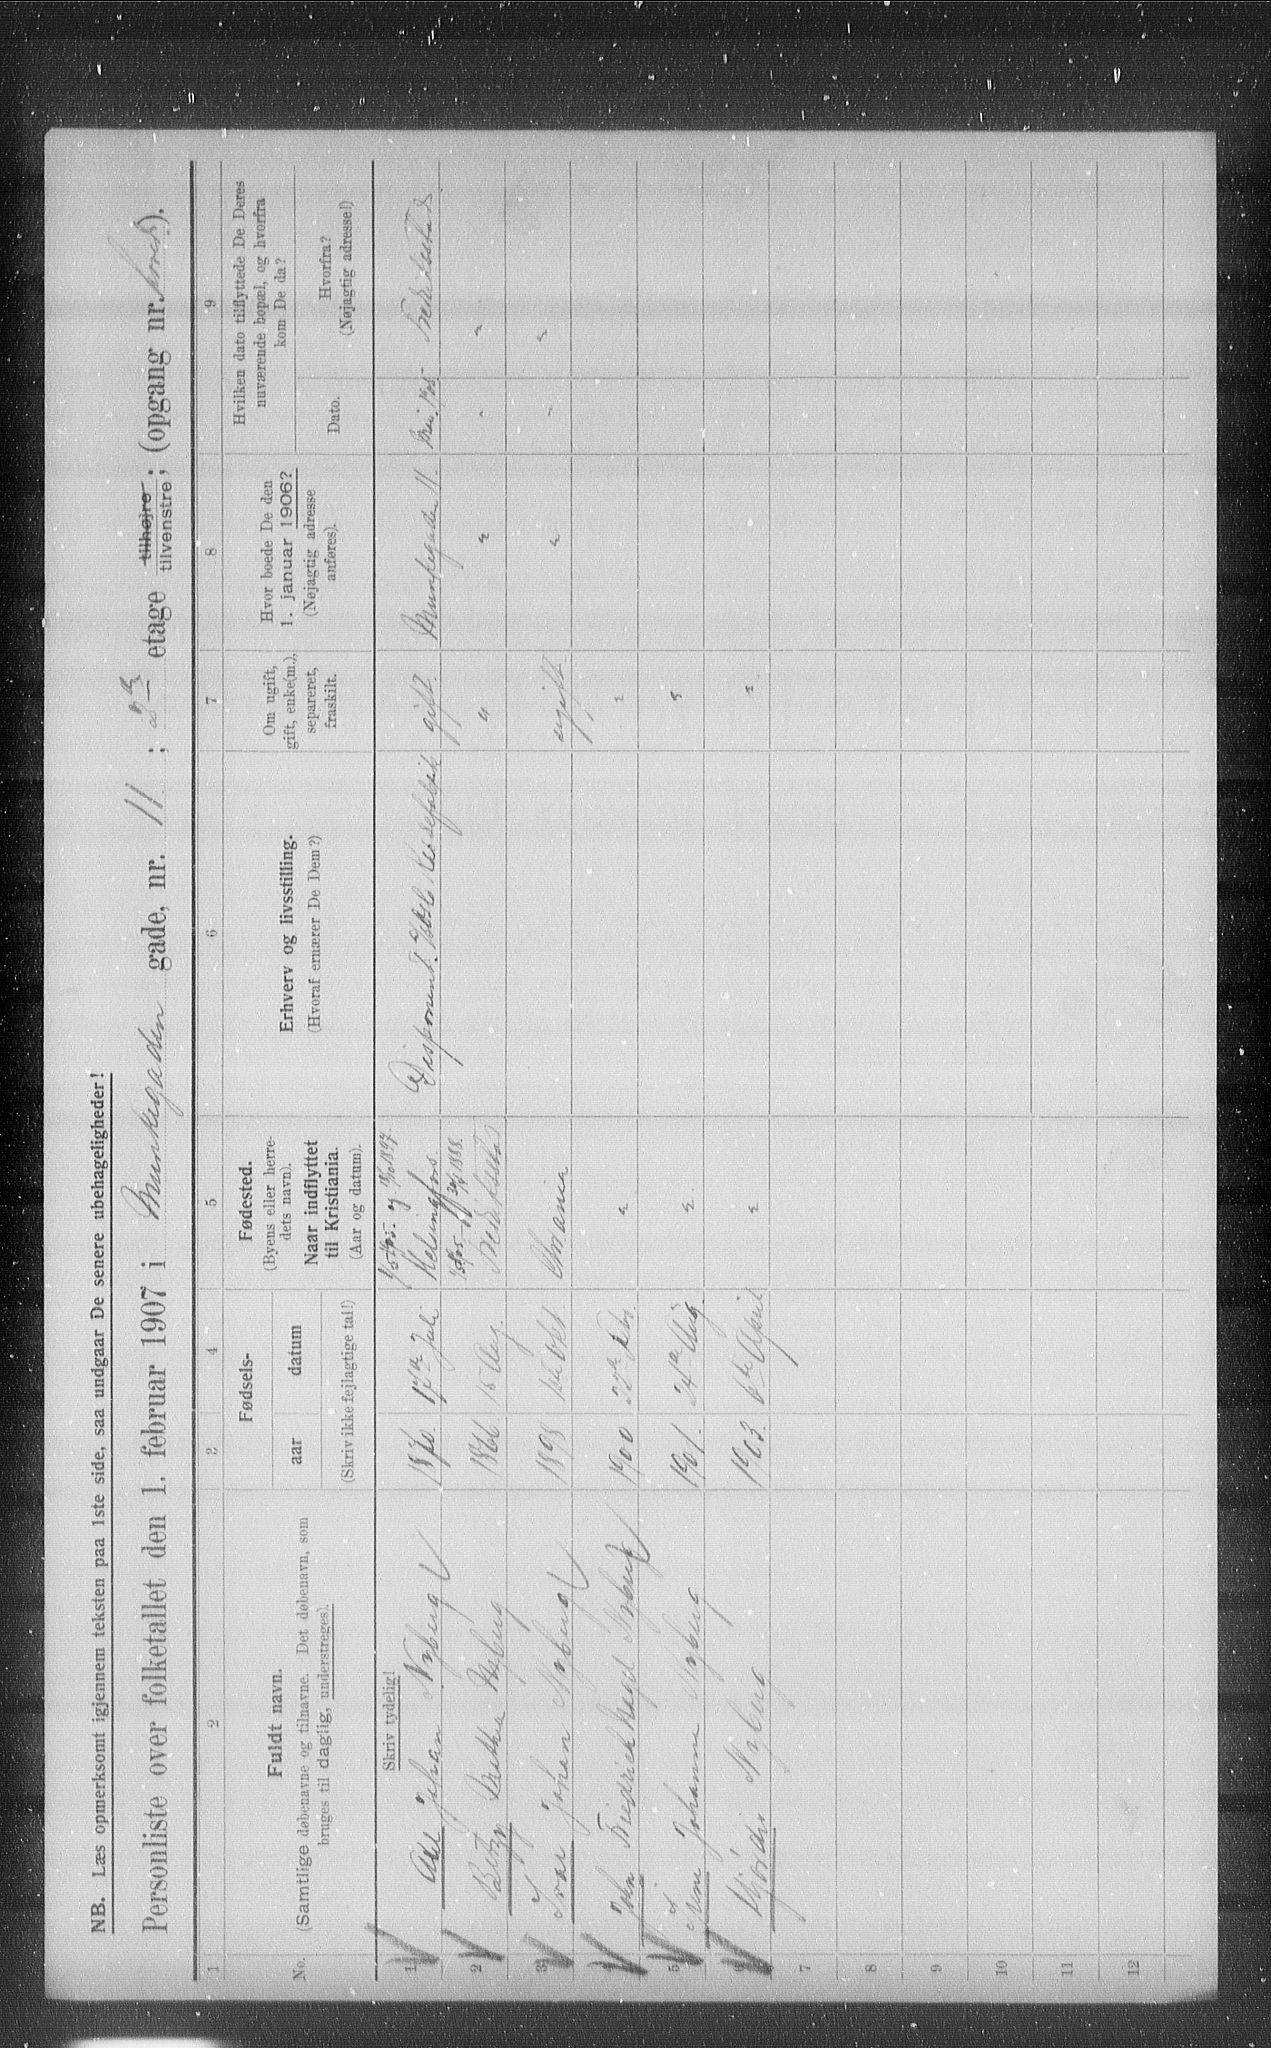 NB. Læs opmerksomt igjennem teksten paa 1ste side, saa undgaar De senere ubehageligheder!
Personliste over folketallet den 1. februar 1907 i Munkegaden gade, nr. 11 ; 2den etage tilhøjre tilvenstre; (opgang nr. ).
1 2 3 4 5 6 7 8 9
No.
Fuldt navn.
(Samtlige døbenavne og tilnavne. Det døbenavn, som
bruges til daglig, understreges).
Fødsels-
aar datum
(Skriv ikke fejlagtige tal!)
Fødested.
(Byens eller herre-
dets navn).
Naar indflyttet
til Kristiania.
(Aar og datum).
Erhverv og livsstilling.
(Hvoraf ernærer De Dem?)
Om ugift,
gift, enke(m.),
separeret,
fraskilt.
Hvor boede De den
1. januar 1906?
(Nøjagtig adresse
anføres).
Hvilken dato tilflyttede De Deres
nuværende bopæl, og hvorfra
kom De da?
Dato.
Hvorfra?
(Nøjagtig adresse!)
Skriv tydelig!
1 Axel Johan Nyberg 1870. 17de Juli Helsingfors Disponent. gift. Munkegaden 11. Mai 1905 Fredrikstad
2 Betzy Mathea Nyberg 1866. 15 Aug. 1888. Fredrikstad " " " "
3 Ivar Johan Nyberg 1898 Oktb. Chrania ugift " " "
4 John Fredrik Nyberg 1900 22de Feb. " "
5 Johanne Nyberg 1901. 24de Aug. " "
6 Nyberg 1903. 6te April " "
7
8
9
10
11
12